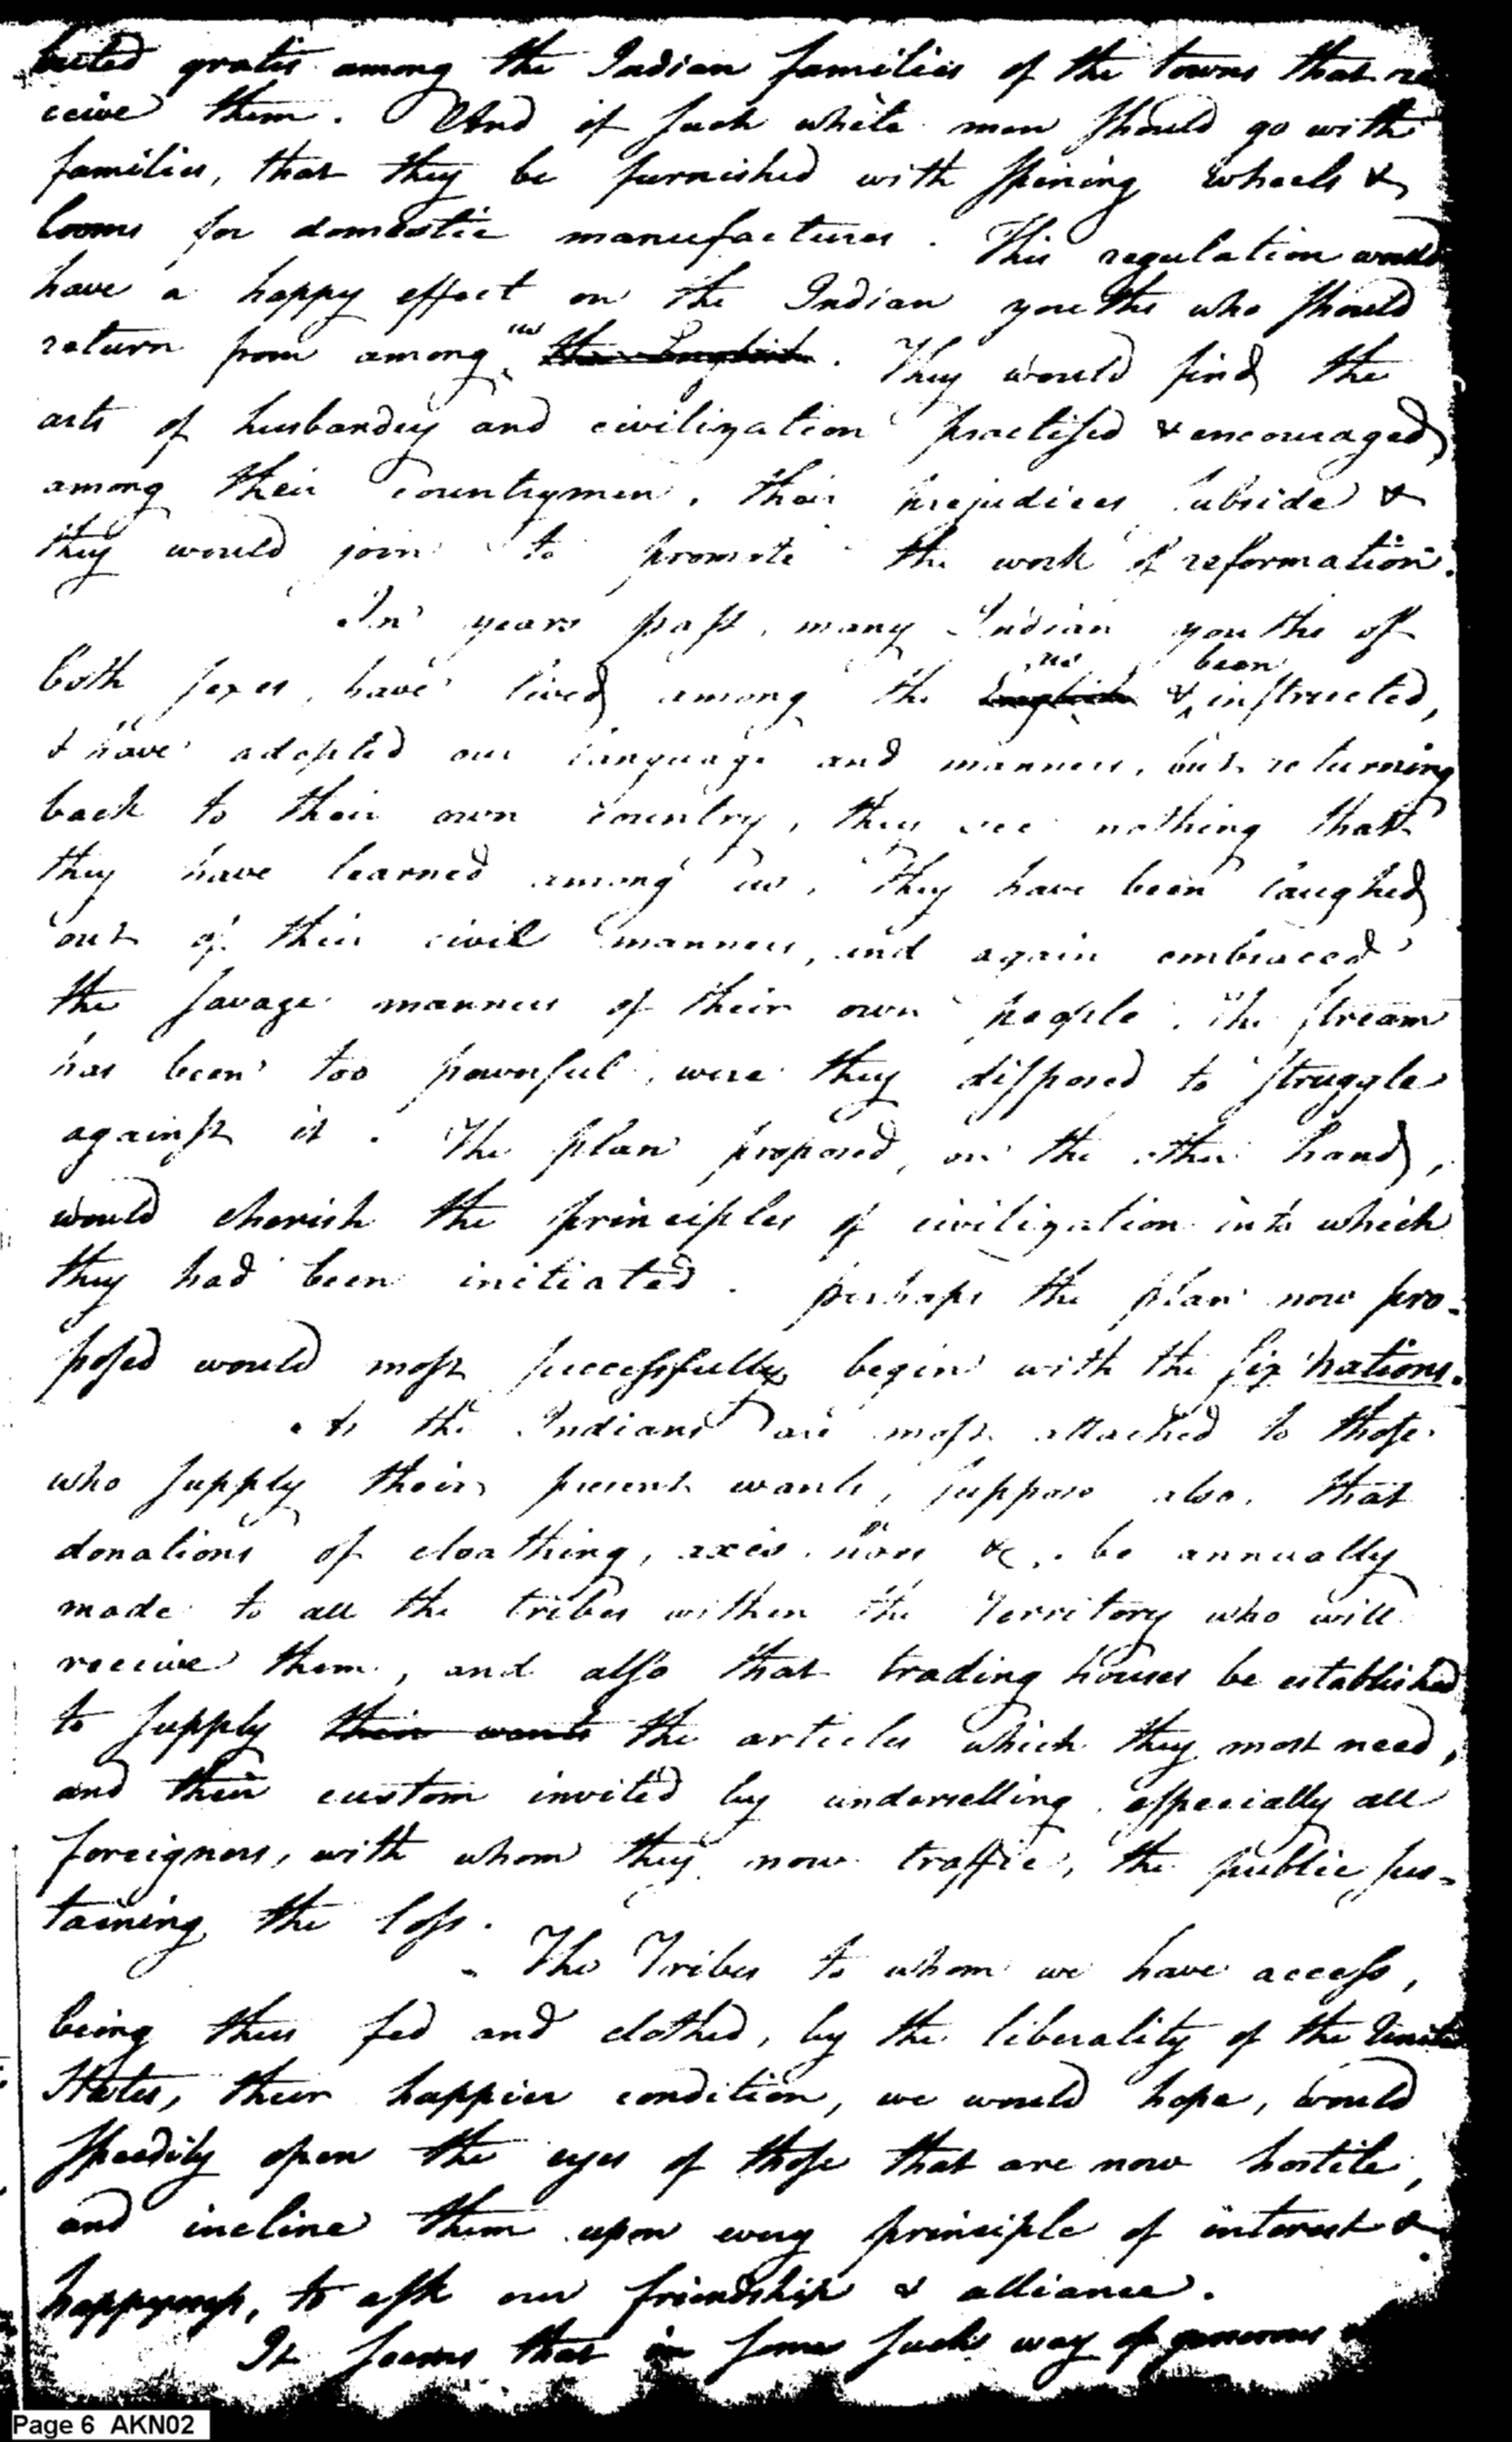 buted gratis among the Indian families of the towns that re
ceive them. And if such white men should go with
families, that they be furnished with spining wheels &
looms for domestic manufactures. This regulation would
have a happy effect on the Indian youths who should
return from among us the English. They would find the
arts of husbandry and civilization practised & encouraged
among their countrymen, their prejudices subside &
they would join to promote the work of reformation.
In years past, many Indian youths of
both sexes, have lived among the English us & been instructed,
& have adopted our language and manners, but returning
back to their own country, they see nothing that
they have learned among us. They have been laughed
out of their civil manners, and again embraced
the savage manners of their own people. The stream
has been too powerful, were they disposed to struggle
against it. The plan proposed, on the other hand,
would cherish the principles of civilization into which
they had been initiated. perhaps the plan now pro-
posed would most successfully begin with the six nations.
As the Indians are most attached to those
who supply their present wants, suppose also, that
donations of cloathing, axes, hoes &c. be annually
made to all the tribes within the Territory who will
receive them, and also that trading houses be established
to supply their wants the articles which they most need,
and their custom invited by underselling especially all
foreigners, with whom they now traffic, the public sus-
taining the loss.
- The Tribes to whom we have access,
being thus fed and clothed, by the liberality of the United
States, their happier condition, we would hope, would
speedily open the eyes of those that are now hostile,
and incline them upon every principle of interest &
happyness, to ask our friendship & alliance.
It seems that in some such way of generous
Page 6 AKN02